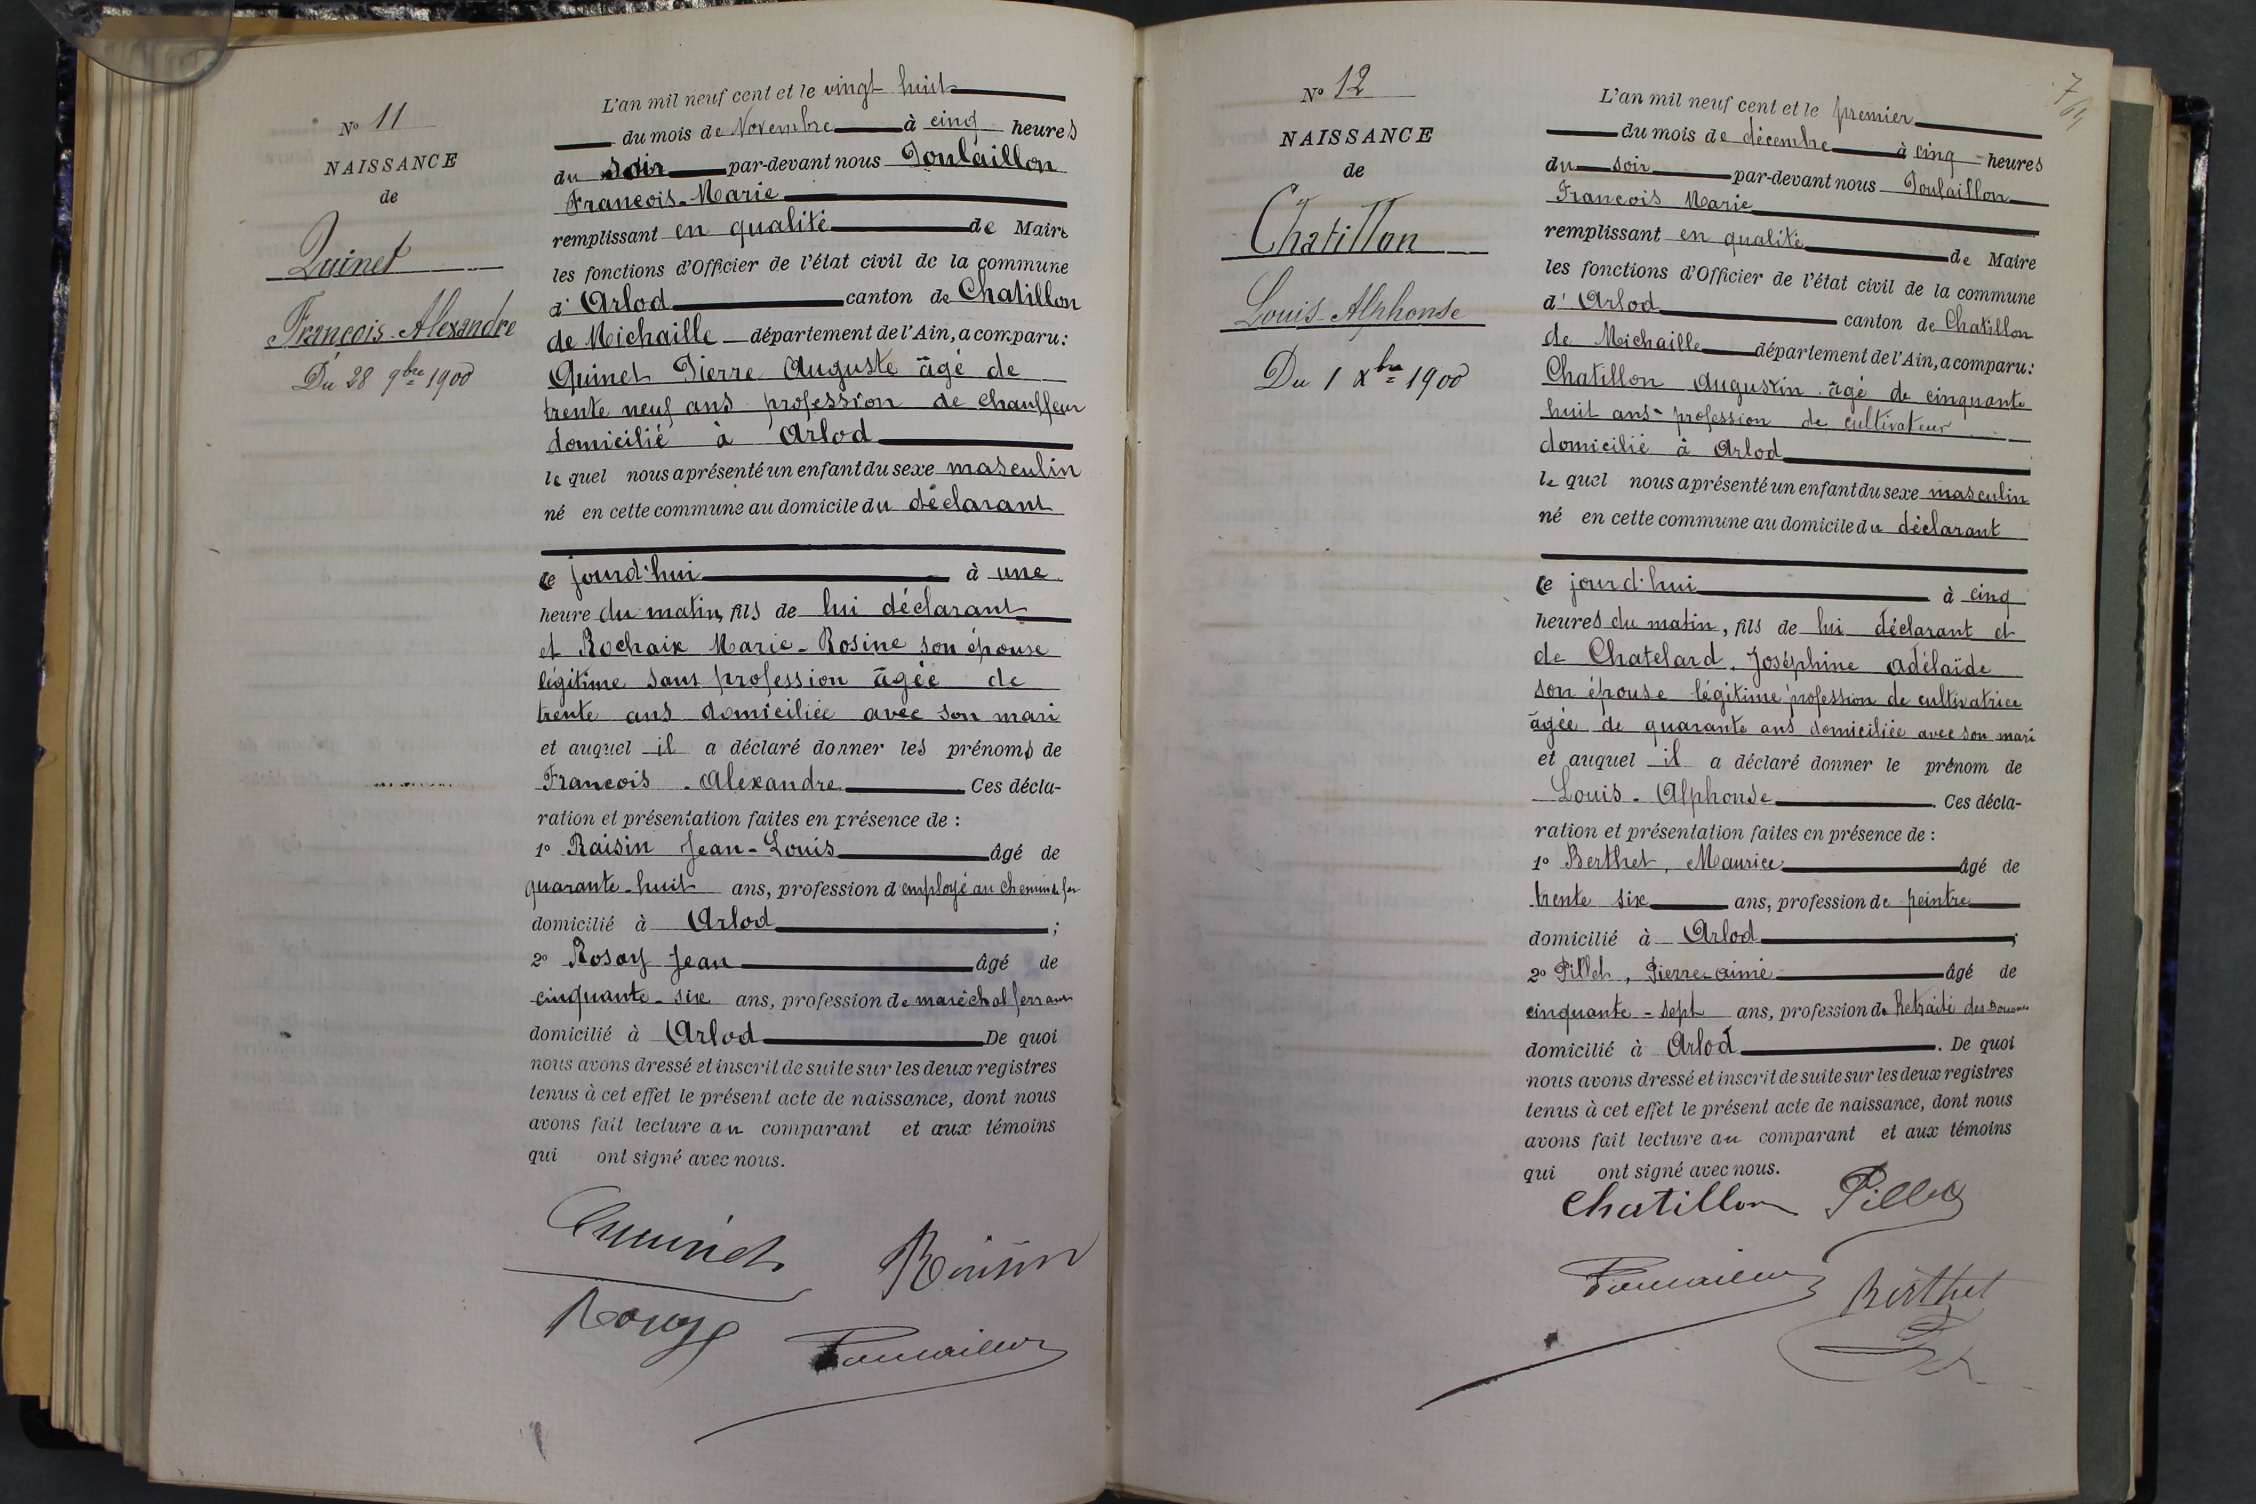 N° 11
NAISSANCE
de
Quinet
François-Alexandre
Du 28 9bre 1900
L'an mil neuf cent et le vingt huit
du mois de Novembre à cinq heures
du soir par-devant nous
François-Marie
remplissant en qualité de Maire
les fonctions d'Officier de l'état civil de la commune
d' Arlod canton de Chatillon
de Michaille département de l'Ain, a comparu:
Quinet Pierre Auguste âgé de
trente neuf ans profession de chauffeur
domicilié à Arlod
le quel nous a présenté un enfant du sexe masculin
né en cette commune au domicile du déclarant
ce jourd'hui à une
heure du matin, fils de lui déclarant
et Rochaix Marie-Rosine son épouse
légitime sans profession âgée de
trente ans domiciliée avec son mari
et auquel il a déclaré donner les prénoms de
François-Alexandre Ces décla-
ration et présentation faites en présence de :
1° Raisin Jean-Louis âgé de
quarante-huit ans, profession d'employé au chemin de fer
domicilié à Arlod ;
2° Rosay Jean âgé de
cinquante-six ans, profession de maréchal ferrant
domicilié à Arlod De quoi
nous avons dressé et inscrit de suite sur les deux registres
tenus à cet effet le présent acte de naissance, dont nous
avons fait lecture au comparant et aux témoins
qui ont signé avec nous.
Quinet Raisin
Rosay
7
N° 12
NAISSANCE
de
Chatillon
Louis-Alphonse
Du 1 Xbre 1900
L'an mil neuf cent et le premier
du mois de décembre à cinq heures
du soir par-devant nous
François Marie
remplissant en qualité de Maire
les fonctions d'Officier de l'état civil de la commune
d' Arlod canton de Chatillon
de Michaille département de l'Ain, a comparu:
Chatillon Augustin âgé de cinquante
huit ans profession de cultivateur
domicilié à Arlod
le quel nous a présenté un enfant du sexe masculin
né en cette commune au domicile du déclarant
ce jourd'hui à cinq
heures du matin, fils de lui déclarant et
de Chatelard, Joséphine Adélaïde
son épouse légitime profession de cultivatrice
âgée de quarante ans domiciliée avec son mari
et auquel il a déclaré donner le prénom de
Louis-Alphonse. Ces décla-
ration et présentation faites en présence de :
1° Berthet, Maurice âgé de
trente six ans, profession de peintre
domicilié à Arlod ;
2° Pillet, Pierre-aimé âgé de
cinquante-sept ans, profession de Retraité des Douanes
domicilié à Arlod. De quoi
nous avons dressé et inscrit de suite sur les deux registres
tenus à cet effet le présent acte de naissance, dont nous
avons fait lecture au comparant et aux témoins
qui ont signé avec nous.
Chatillon Pillet
Berthet